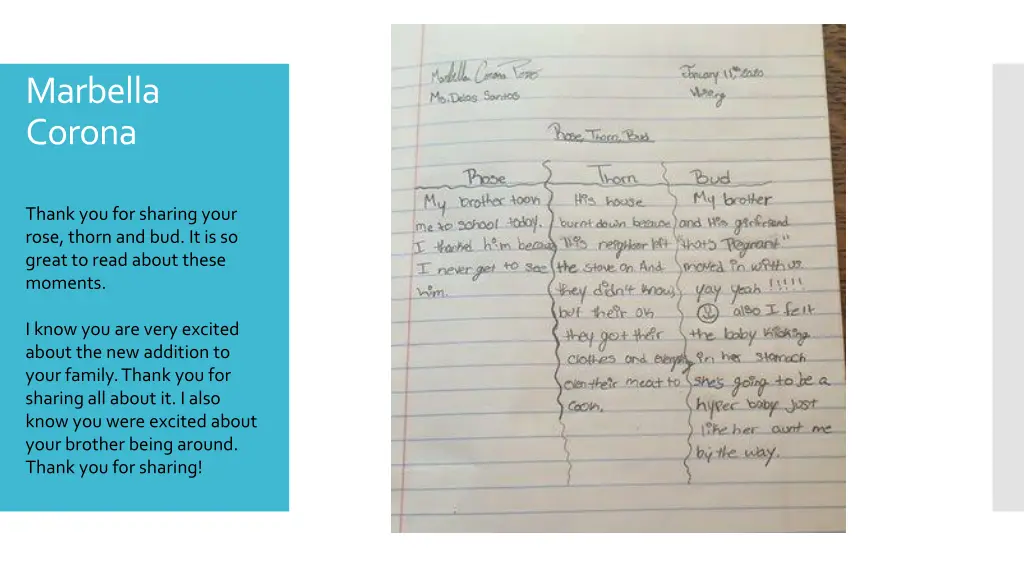 Marbella
Corona
Thank you for sharing your
rose, thorn and bud. It is so
great to read about these
moments.
I know you are very excited
about the new addition to
your family. Thank you for
sharing all about it. I also
know you were excited about
your brother being around.
Thank you for sharing!
Marbella Corona
January 11th, 2020
Ms. Delos Santos
Rose, Thorn, Bud
Rose
My brother toon
me to school today.
I thanked him because
I never get to see
him.
Thorn
His house
burnt down because
his neighber left
the stove on. And
they didn't know,
but their ok
they got their
clothes and everything
even their meat to
coon.
Bud
My brother
and His girlfriend
"thats Pegnant"
moved in with us.
yay yeah !!!!!
also I felt
the baby kicking
in her stomach
she's going to be a
hyper baby just
like her aunt me
by the way.